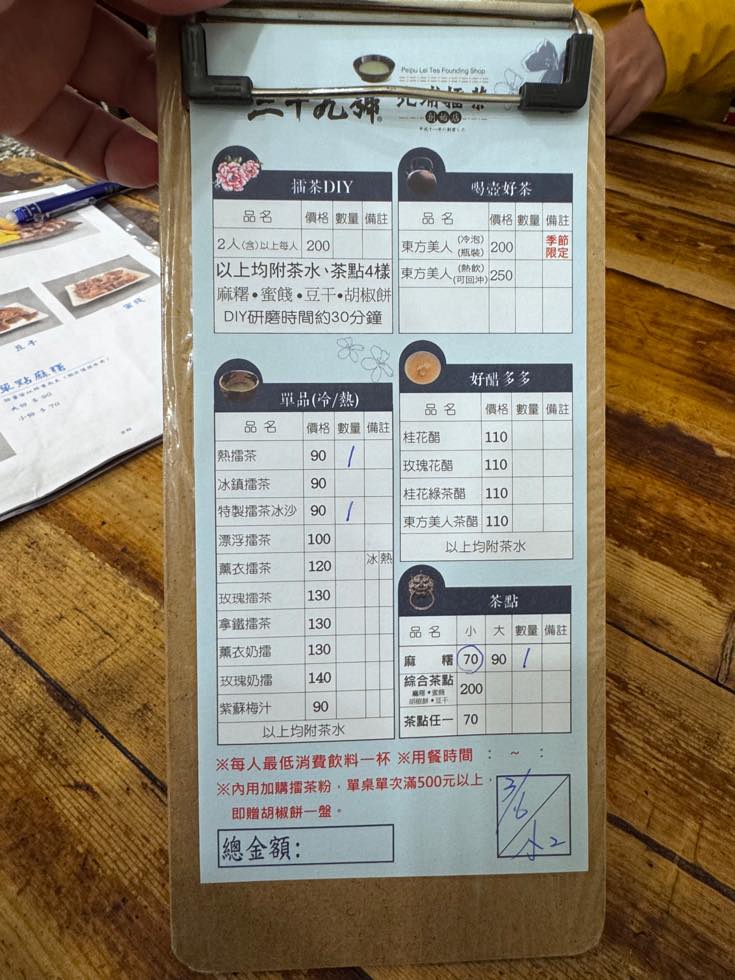 Peipu Lei Tea Founding Shop
三十九號 北埔擂茶
創始店
擂茶DIY
品名 價格 數量 備註
2人(含)以上每人 200
以上均附茶水、茶點4樣
麻糬•蜜餞•豆干•胡椒餅
DIY研磨時間約30分鐘
喝壺好茶
品名 價格 數量 備註
東方美人(冷泡)(瓶裝) 200 季節限定
東方美人(熱飲)(可回沖) 250
單品(冷/熱)
品名 價格 數量 備註
熱擂茶 90 1
冰鎮擂茶 90
特製擂茶冰沙 90 1
漂浮擂茶 100
薰衣擂茶 120 冰 熱
玫瑰擂茶 130
拿鐵擂茶 130
薰衣奶擂 130
玫瑰奶擂 140
紫蘇梅汁 90
以上均附茶水
好醋多多
品名 價格 數量 備註
桂花醋 110
玫瑰花醋 110
桂花綠茶醋 110
東方美人茶醋 110
以上均附茶水
茶點
品名 小 大 數量 備註
麻糬 70 90 1
綜合茶點 200
麻糬•蜜餞
胡椒餅•豆干
茶點任一 70
※每人最低消費飲料一杯 ※用餐時間 : ~ :
※內用加購擂茶粉，單桌單次滿500元以上，
即贈胡椒餅一盤。
總金額:
3/6
豆干
蜜餞
茶點麻糬
大份 $ 90
小份 $ 70